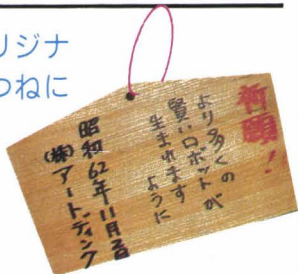 リジナ
つねに
祈願！
より多くの
賢いロボットが
生まれます
ように
昭和62年11月2日
(株)アートディンク